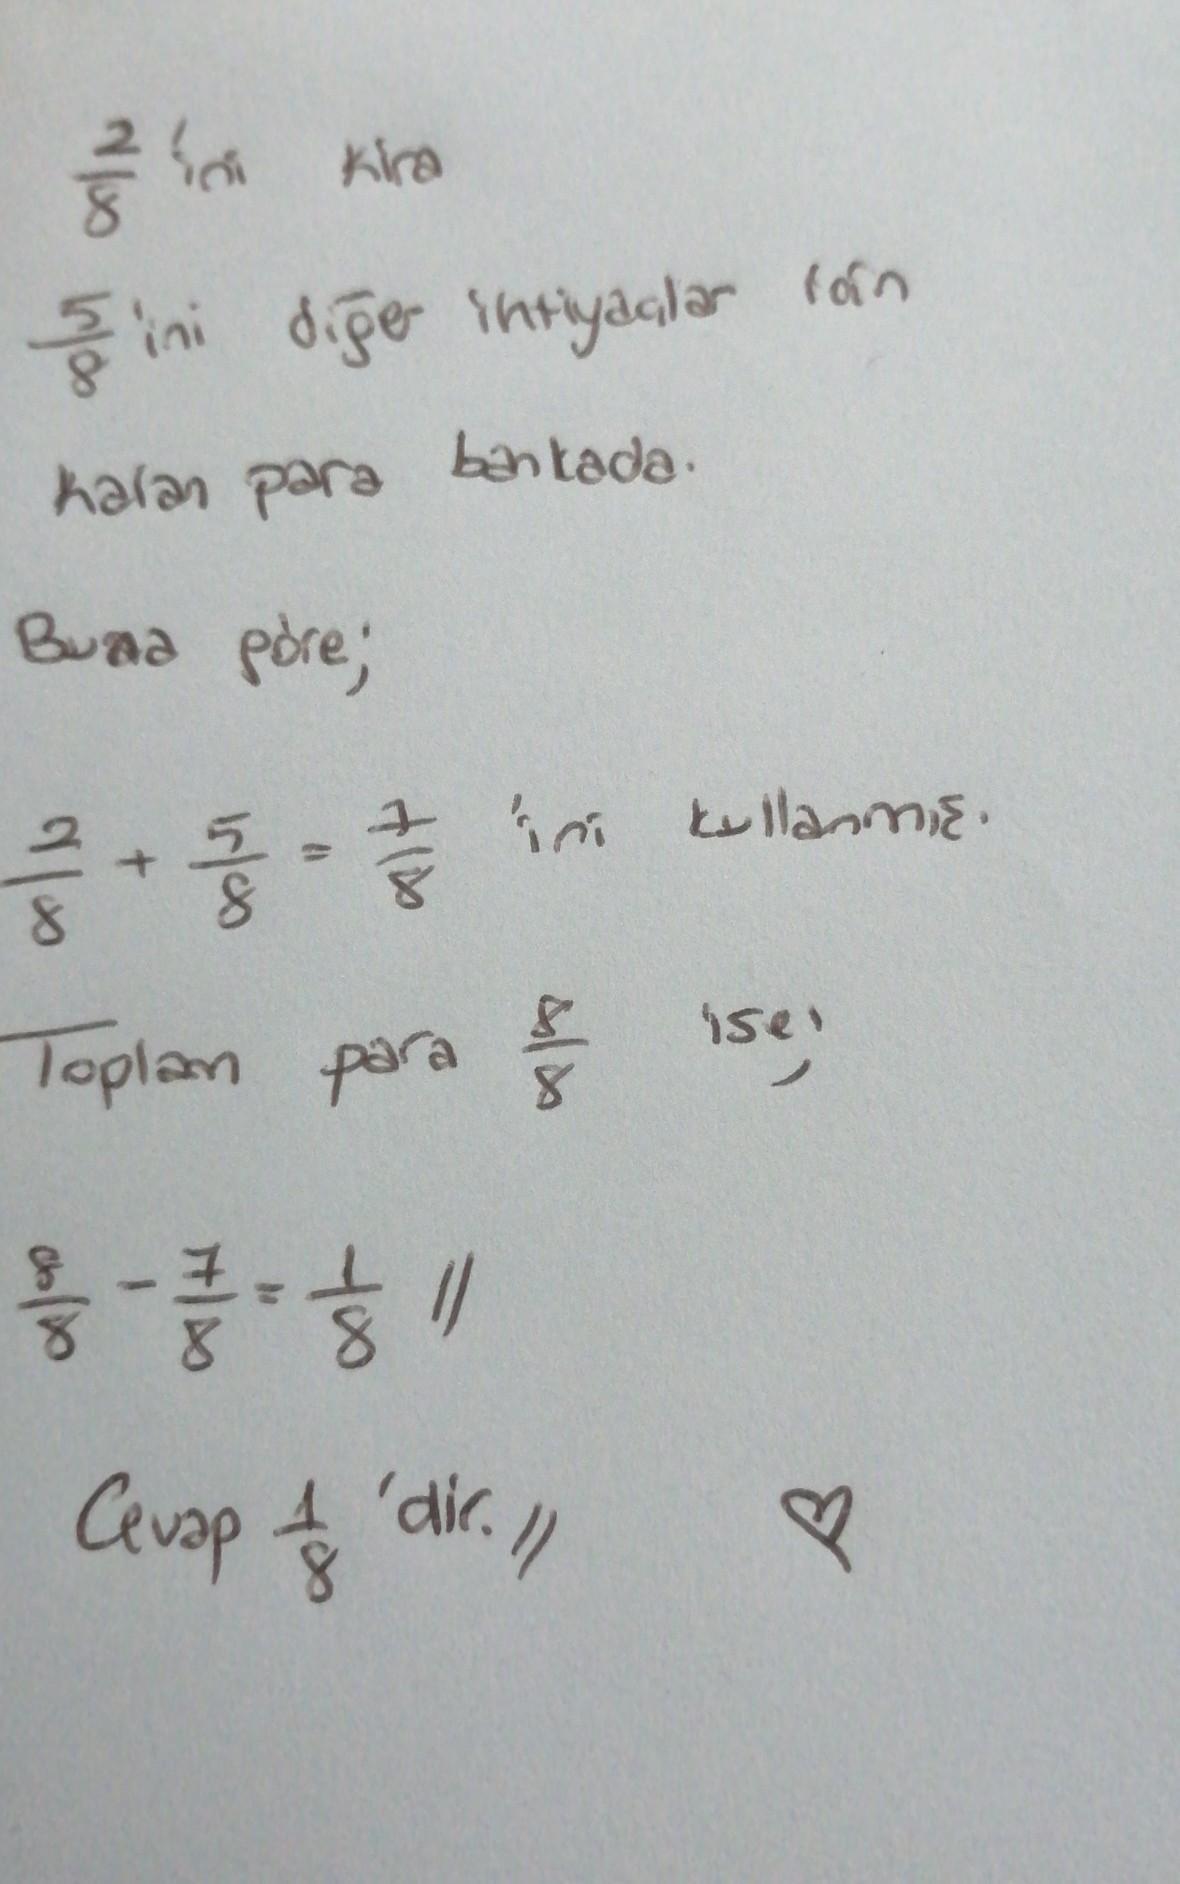 2/8 'ini kira
5/8 'ini diğer ihtiyaçlar için
Kalan para bankada.
Buna göre;
2/8 + 5/8 = 7/8 'ini kullanmış.
Toplam para 8/8 ise;
8/8 - 7/8 = 1/8 //
Cevap 1/8 'dir. //